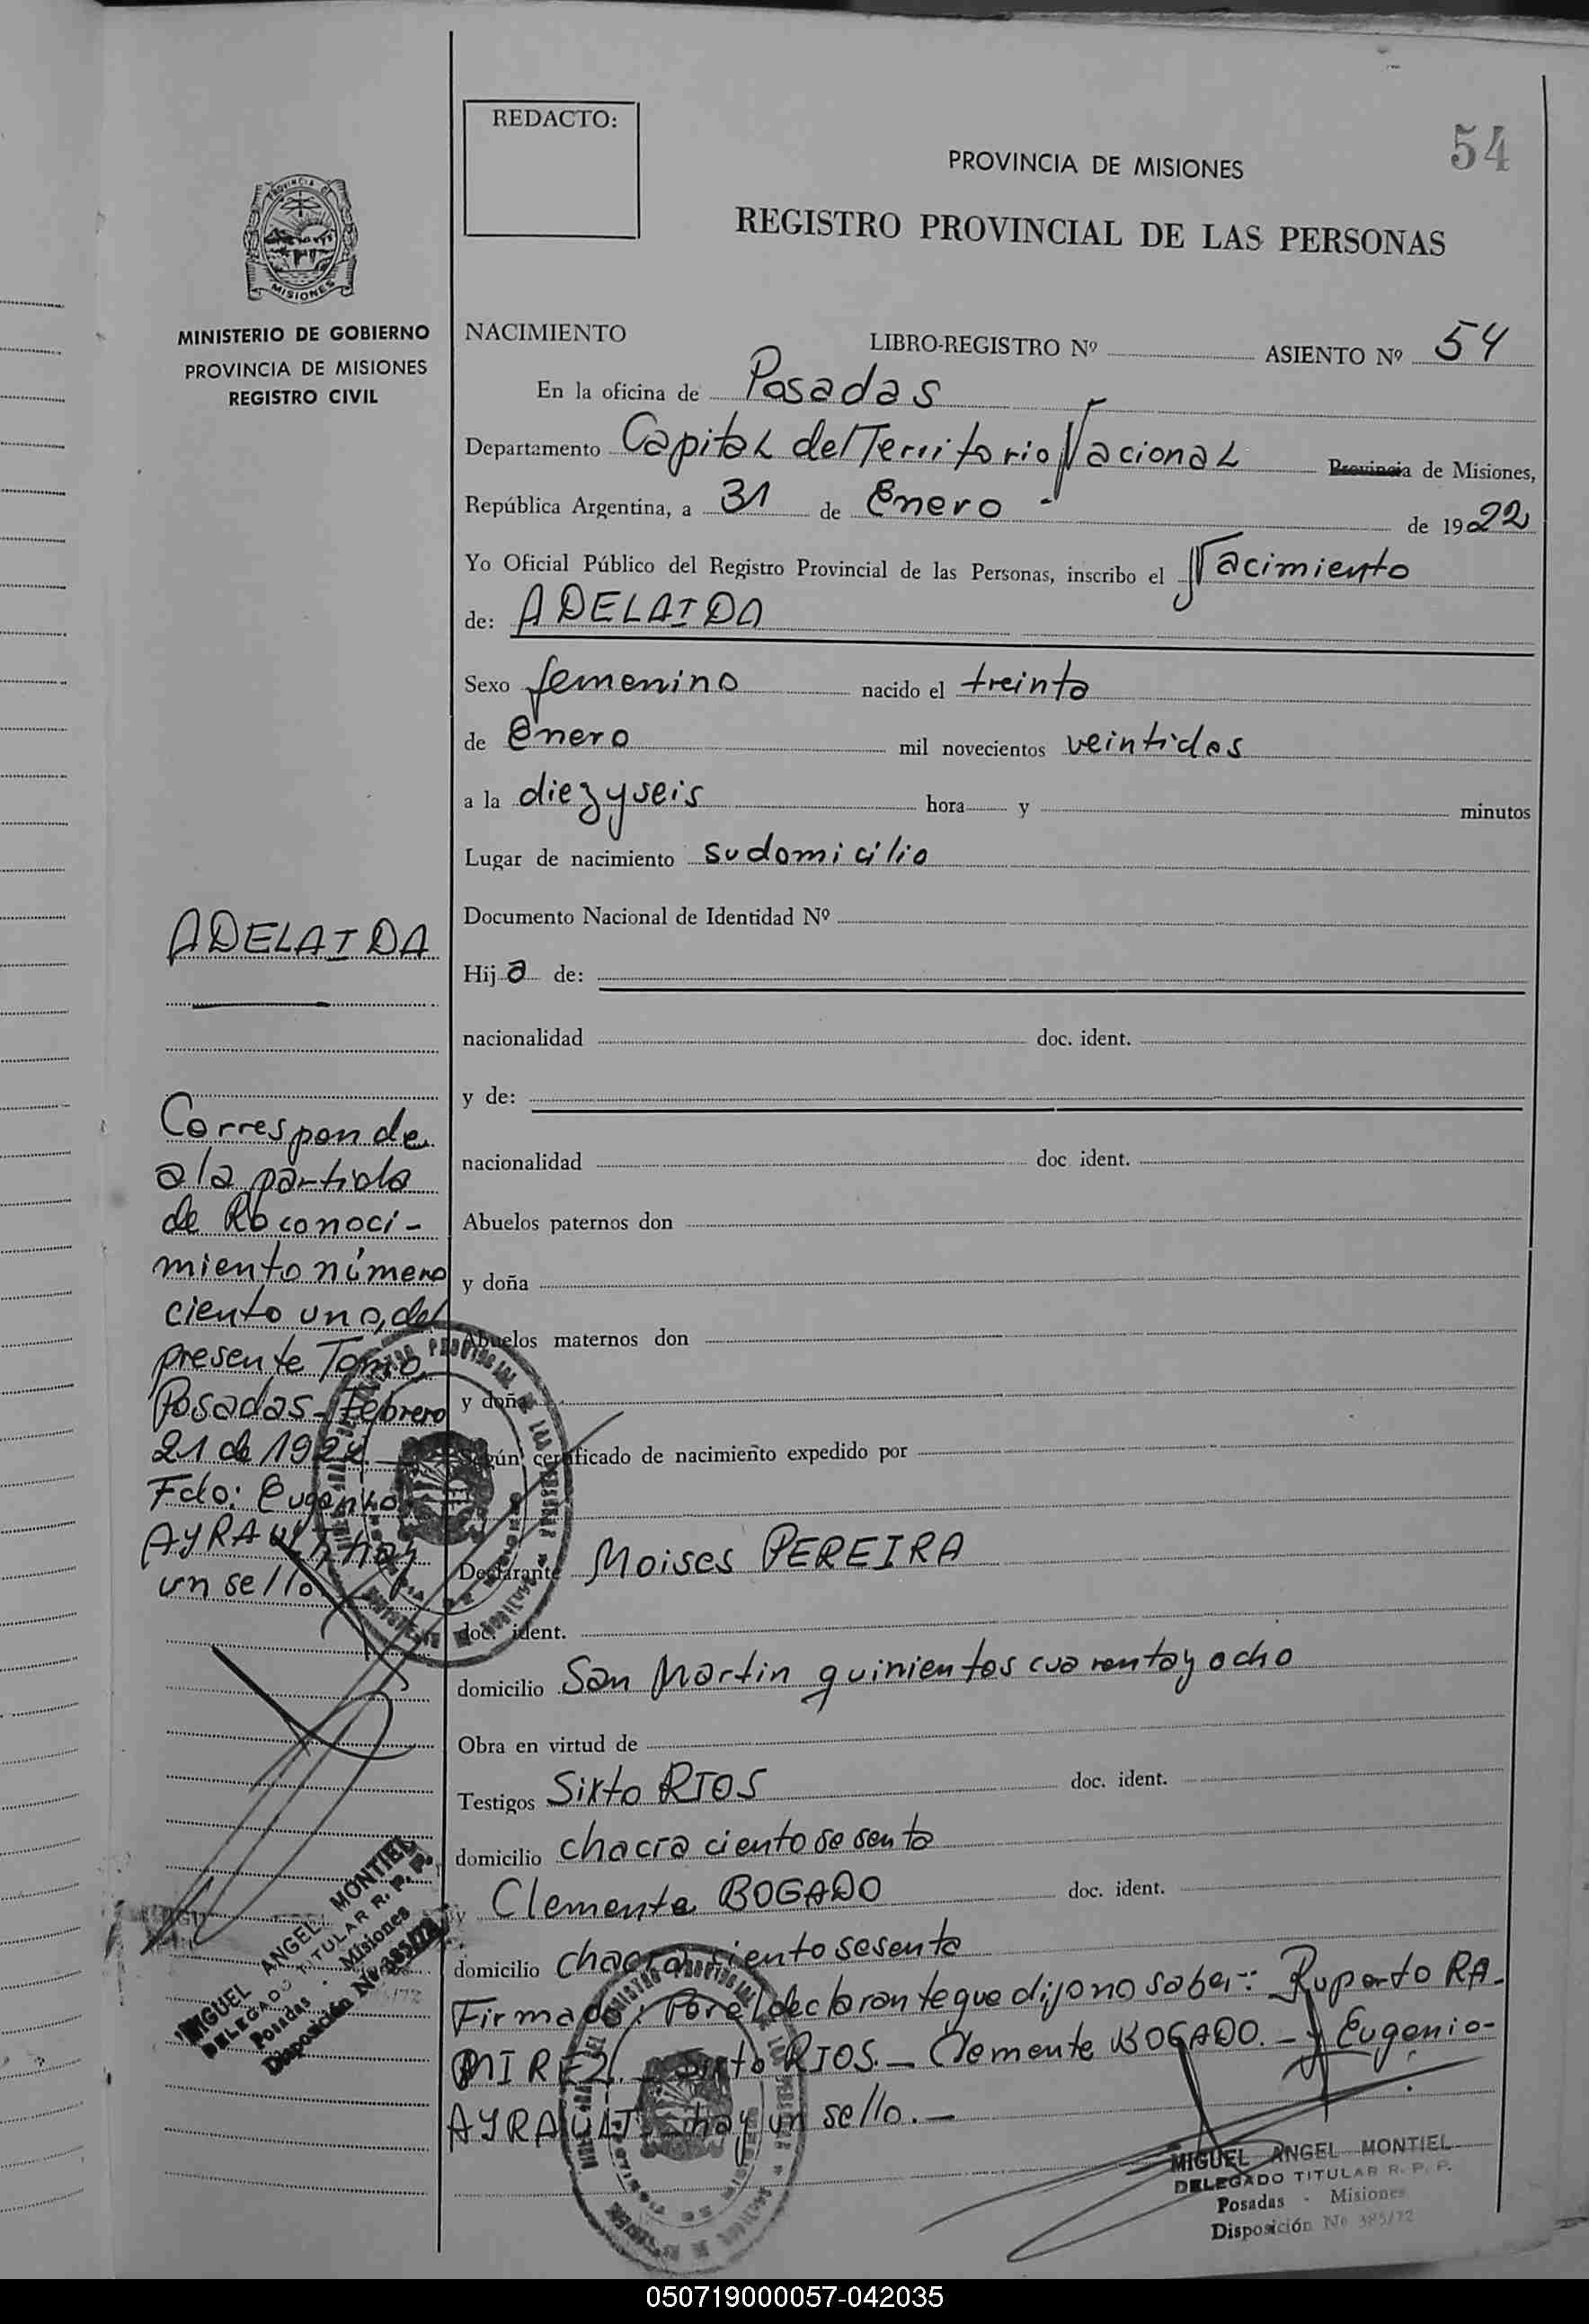 REDACTO:
54
PROVINCIA DE MISIONES
REGISTRO PROVINCIAL DE LAS PERSONAS
PROVINCIA DE
MISIONES
MINISTERIO DE GOBIERNO
PROVINCIA DE MISIONES
REGISTRO CIVIL
NACIMIENTO LIBRO-REGISTRO Nº ASIENTO Nº 54
En la oficina de Posadas
Departamento Capital del Territorio Nacional Provincia de Misiones,
República Argentina, a 31 de Enero - de 1922
Yo Oficial Público del Registro Provincial de las Personas, inscribo el Nacimiento
de: ADELAIDA
Sexo femenino nacido el treinta
de Enero mil novecientos veintidos
a la diez y seis hora y minutos
Lugar de nacimiento su domicilio
Documento Nacional de Identidad Nº
Hija de:
nacionalidad doc. ident.
y de:
nacionalidad doc ident.
Abuelos paternos don
y doña
Abuelos maternos don
y doña
Según certificado de nacimiento expedido por
Declarante Moises PEREIRA
doc. ident.
domicilio San Martin quinientos cuarenta y ocho
Obra en virtud de
Testigos Sixto RIOS doc. ident.
domicilio chacra ciento sesenta
y Clemente BOGADO doc. ident.
domicilio chacra ciento sesenta
Firmado: Por el declarante que dijo no saber: Ruperto RA-
MIREZ. - Sixto RIOS. - Clemente BOGADO. - y Eugenio -
AYRAULT - hay un sello. -
MIGUEL ANGEL MONTIEL
DELEGADO TITULAR R. P. P.
Posadas - Misiones
Disposición Nº 385/72
ADELAIDA
Corresponde
a la partida
de Reconoci-
miento número
ciento uno, del
presente Tomo,
Posadas - Febrero
21 de 1922. -
Fdo: Eugenio
AYRAULT, hay
un sello.
MIGUEL ANGEL MONTIEL
DELEGADO TITULAR R. P. P.
Posadas - Misiones
Disposición Nº 385/72
050719000057-042035